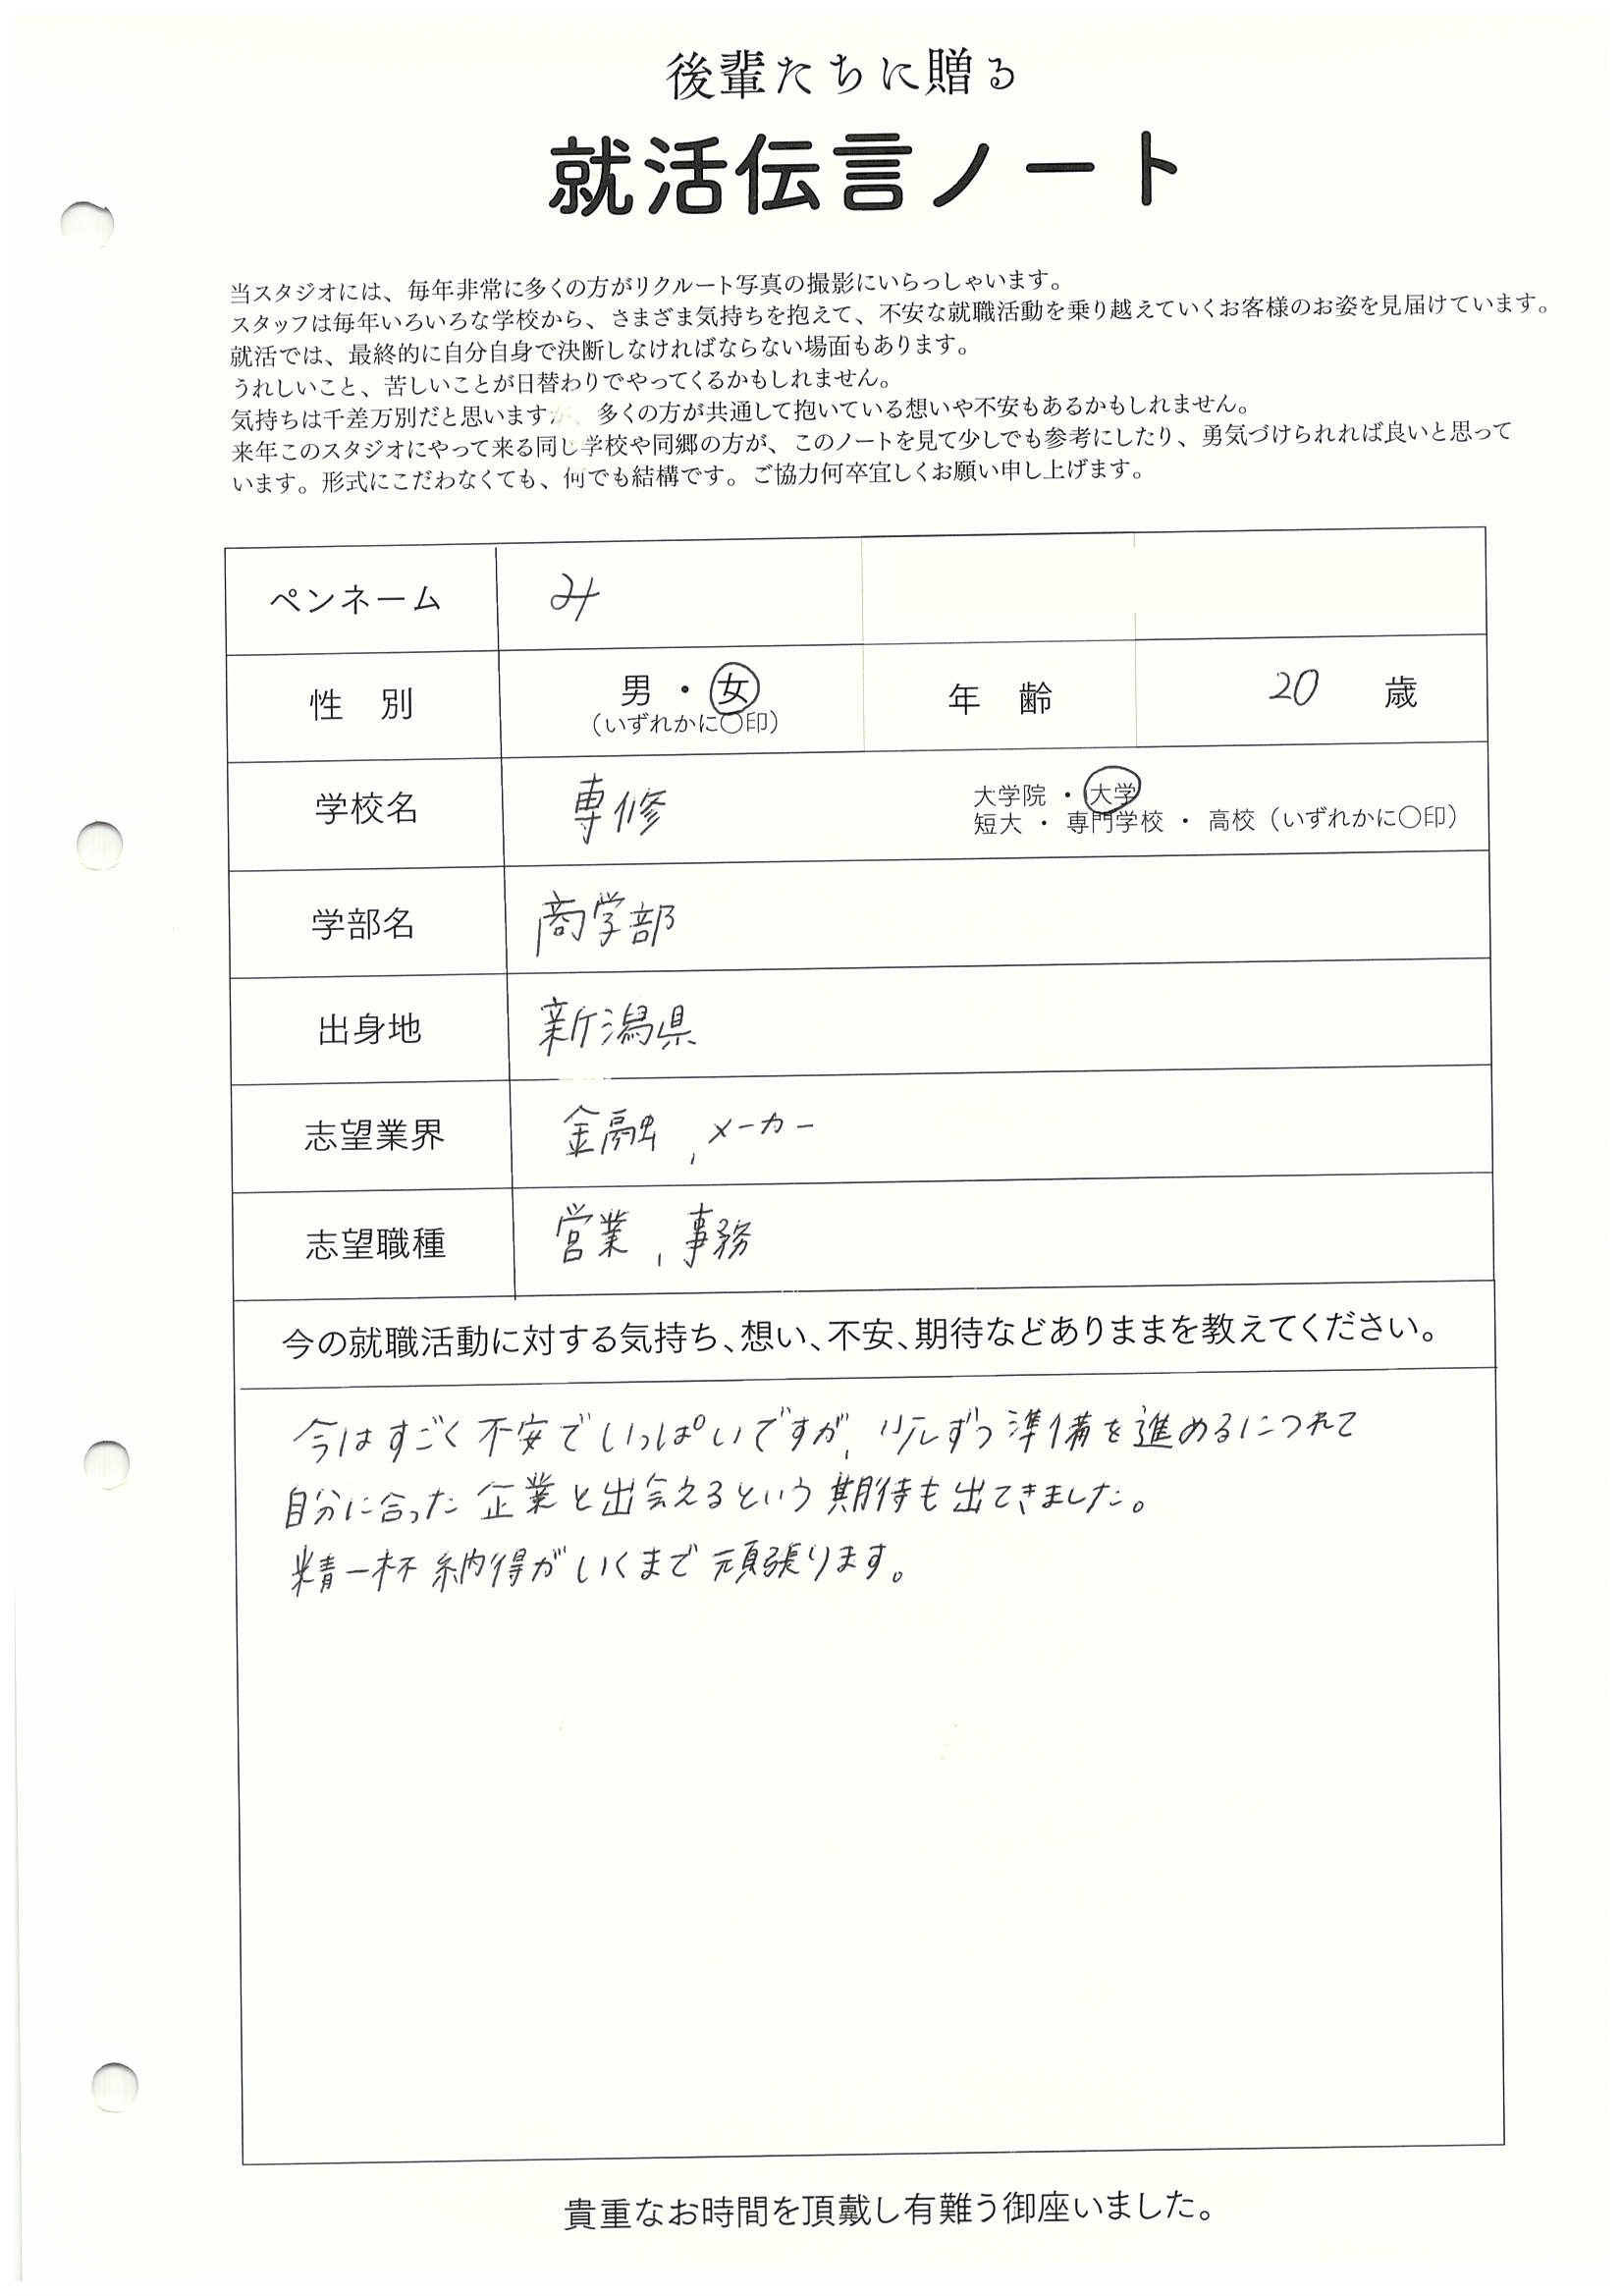 後輩たちに贈る
就活伝言ノート
当スタジオには、毎年非常に多くの方がリクルート写真の撮影にいらっしゃいます。
スタッフは毎年いろいろな学校から、さまざま気持ちを抱えて、不安な就職活動を乗り越えていくお客様のお姿を見届けています。
就活では、最終的に自分自身で決断しなければならない場面もあります。
うれしいこと、苦しいことが日替わりでやってくるかもしれません。
気持ちは千差万別だと思いますが、多くの方が共通して抱いている想いや不安もあるかもしれません。
来年このスタジオにやって来る同じ学校や同郷の方が、このノートを見て少しでも参考にしたり、勇気づけられれば良いと思って
います。形式にこだわなくても、何でも結構です。ご協力何卒宜しくお願い申し上げます。
ペンネーム み
性 別 男 ・ 女 年 齢 20 歳
（いずれかに〇印）
学校名 専修 大学院 ・ 大学
短大 ・ 専門学校 ・ 高校（いずれかに〇印）
学部名 商学部
出身地 新潟県
志望業界 金融、メーカー
志望職種 営業、事務
今の就職活動に対する気持ち、想い、不安、期待などありままを教えてください。
今はすごく不安でいっぱいですが、少しずつ準備を進めるにつれて
自分に合った企業と出会えるという期待も出てきました。
精一杯納得がいくまで頑張ります。
貴重なお時間を頂戴し有難う御座いました。